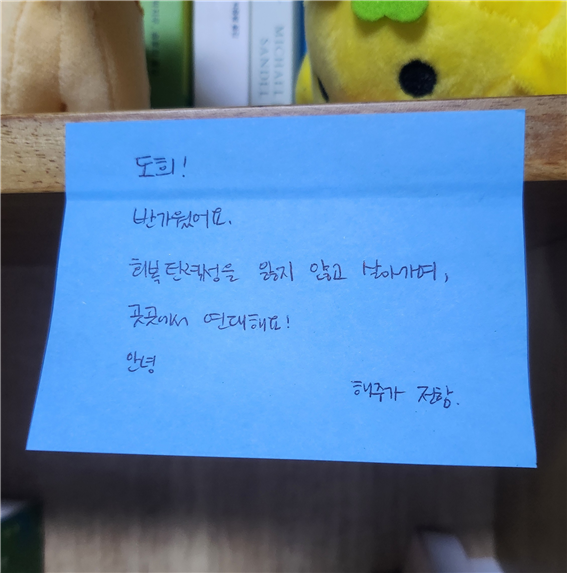 MICHAEL
SANDEL
도희!
반가웠어요.
회복탄력성을 잃지 않고 살아가며,
곳곳에서 연대해요!
안녕
해주가 전함.